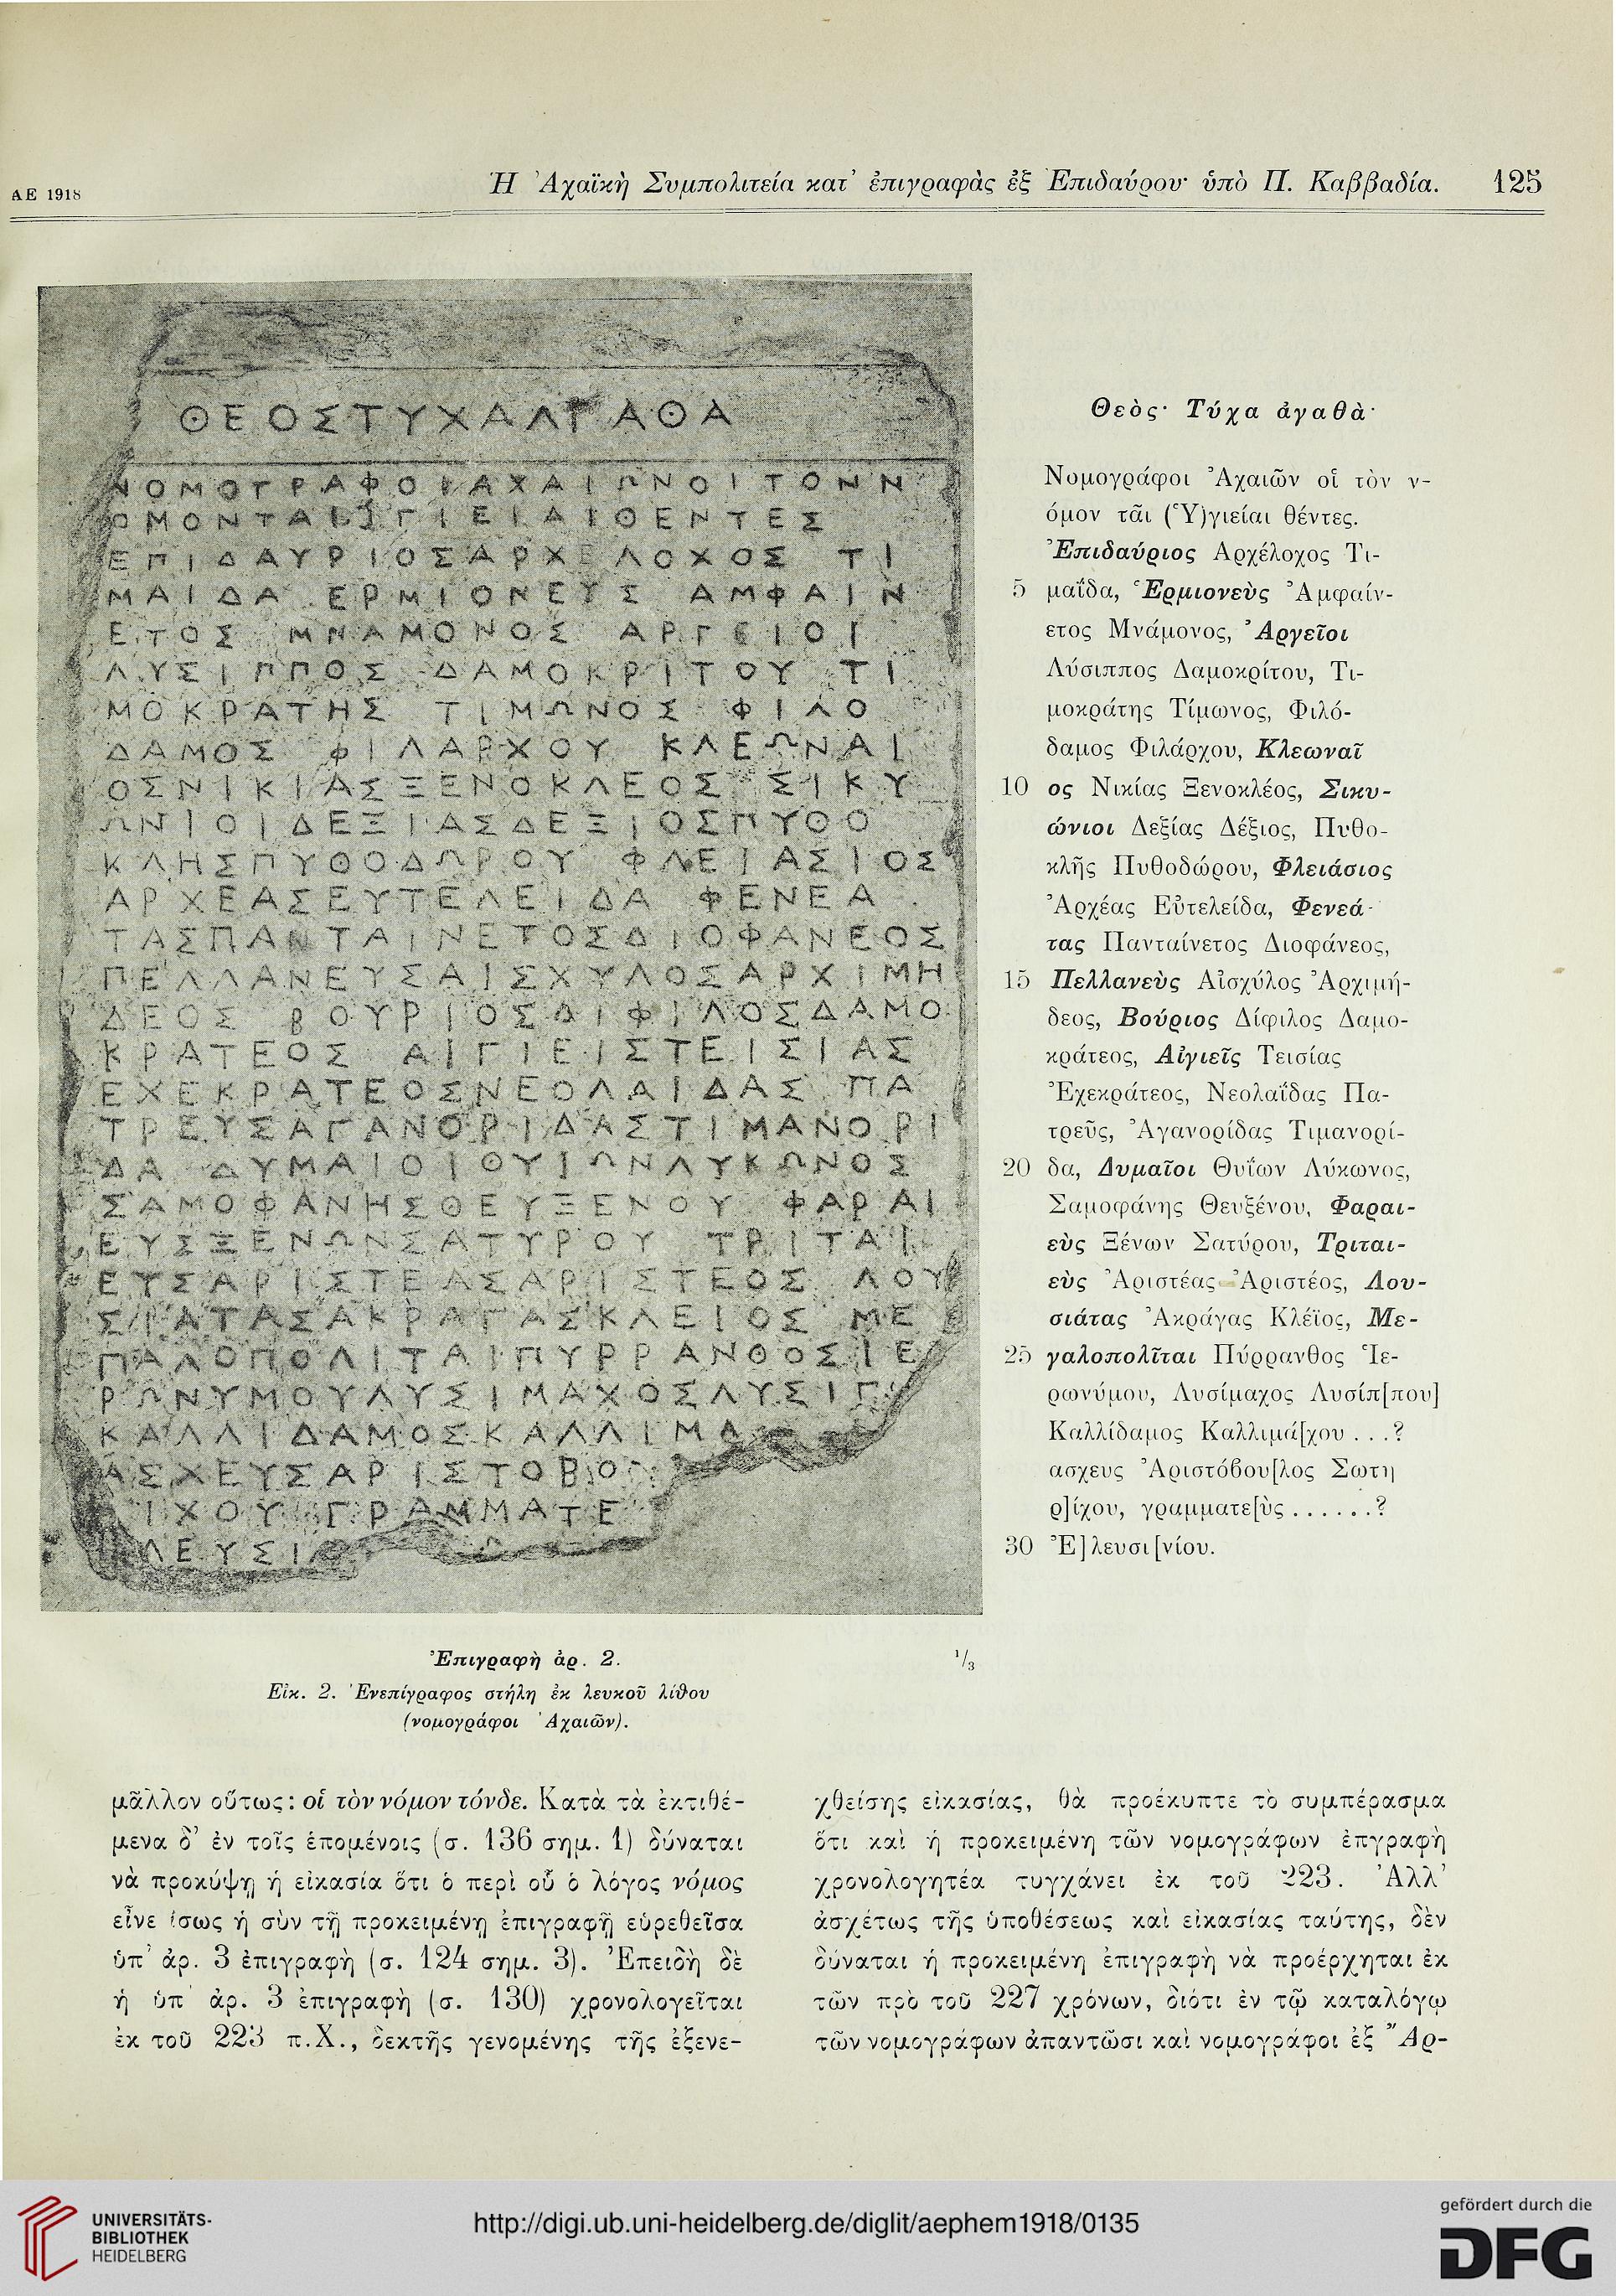 ΑΕ 1918
Ἡ Ἀχαϊκὴ Συμπολιτεία κατ' ἐπιγραφὰς ἐξ Ἐπιδαύρου· ὑπὸ Π. Καββαδία.
125
ΘΕΟΣΤΥΧΑΑΓΑΘΑ
ΝΟΜΟΓΡΑΦΟΙΑΧΑΙΩΝΟΙΤΟΝΝ
ΟΜΟΝΤΑΙΥΓΙΕΙΑΙΘΕΝΤΕΣ
ΕΠΙΔΑΥΡΙΟΣΑΡΧΕΛΟΧΟΣ ΤΙ
ΜΑΙΔΑ ΕΡΜΙΟΝΕΥΣ ΑΜΦΑΙΝ
ΕΤΟΣ ΜΝΑΜΟΝΟΣ ΑΡΓΕΙΟΙ
ΛΥΣΙΠΠΟΣ ΔΑΜΟΚΡΙΤΟΥ ΤΙ
ΜΟΚΡΑΤΗΣ ΤΙΜΩΝΟΣ ΦΙΛΟ
ΔΑΜΟΣ ΦΙΛΑΡΧΟΥ ΚΛΕΩΝΑΙ
ΟΣΝΙΚΙΑΣΞΕΝΟΚΛΕΟΣ ΣΙΚΥ
ΩΝΙΟΙΔΕΞΙΑΣΔΕΞΙΟΣΠΥΘΟ
ΚΛΗΣΠΥΘΟΔΩΡΟΥ ΦΛΕΙΑΣΙΟΣ
ΑΡΧΕΑΣΕΥΤΕΛΕΙΔΑ ΦΕΝΕΑ
ΤΑΣΠΑΝΤΑΙΝΕΤΟΣΔΙΟΦΑΝΕΟΣ
ΠΕΛΛΑΝΕΥΣΑΙΣΧΥΛΟΣΑΡΧΙΜΗ
ΔΕΟΣ ΒΟΥΡΙΟΣΔΙΦΙΛΟΣΔΑΜΟ
ΚΡΑΤΕΟΣ ΑΙΓΙΕΙΣΤΕΙΣΙΑΣ
ΕΧΕΚΡΑΤΕΟΣΝΕΟΛΑΙΔΑΣ ΠΑ
ΤΡΕΥΣΑΓΑΝΟΡΙΔΑΣΤΙΜΑΝΟΡΙ
ΔΑ ΔΥΜΑΙΟΙΘΥΙΩΝΛΥΚΩΝΟΣ
ΣΑΜΟΦΑΝΗΣΘΕΥΞΕΝΟΥ ΦΑΡΑΙ
ΕΥΣΞΕΝΩΝΣΑΤΥΡΟΥ ΤΡΙΤΑΙ
ΕΥΣΑΡΙΣΤΕΑΣΑΡΙΣΤΕΟΣ ΛΟΥ
ΣΙΑΤΑΣΑΚΡΑΓΑΣΚΛΕΙΟΣ ΜΕ
ΓΑΛΟΠΟΛΙΤΑΙΠΥΡΡΑΝΘΟΣΙΕ
ΡΩΝΥΜΟΥΛΥΣΙΜΑΧΟΣΛΥΣΙΠ
ΚΑΛΛΙΔΑΜΟΣΚΑΛΛΙΜΑ
ΑΣΧΕΥΣΑΡΙΣΤΟΒΟ
ΙΧΟΥ ΓΡΑΜΜΑΤΕ
ΛΕΥΣΙ
Θεὸς· Τύχα ἀγαθὰ·
Νομογράφοι Ἀχαιῶν οἱ τὸν ν-
όμον τᾶι (Ὑ)γιείαι θέντες.
Ἐπιδαύριος Αρχέλοχος Τι-
5 μαΐδα, Ἑρμιονεὺς Ἀμφαίν-
ετος Μνάμονος, Ἀργεῖοι
Λύσιππος Δαμοκρίτου, Τι-
μοκράτης Τίμωνος, Φιλό-
δαμος Φιλάρχου, Κλεωναῖ
10 ος Νικίας Ξενοκλέος, Σικυ-
ώνιοι Δεξίας Δέξιος, Πυθο-
κλῆς Πυθοδώρου, Φλειάσιος
Ἀρχέας Εὐτελείδα, Φενεά-
τας Πανταίνετος Διοφάνεος,
15 Πελλανεὺς Αἰσχύλος Ἀρχιμή-
δεος, Βούριος Δίφιλος Δαμο-
κράτεος, Αἰγιεῖς Τεισίας
Ἐχεκράτεος, Νεολαΐδας Πα-
τρεῦς, Ἀγανορίδας Τιμανορί-
20 δα, Δυμαῖοι Θυΐων Λύκωνος,
Σαμοφάνης Θευξένου, Φαραι-
εὺς Ξένων Σατύρου, Τριται-
εὺς Ἀριστέας Ἀριστέος, Λου-
σιάτας Ἀκράγας Κλέϊος, Με-
25 γαλοπολῖται Πύρρανθος Ἱε-
ρωνύμου, Λυσίμαχος Λυσίπ[που]
Καλλίδαμος Καλλιμά[χου . . .?
ασχευς Ἀριστόβου[λος Σωτη
ρ]ίχου, γραμματε[ὺς . . . . . .?
30 Ἐ]λευσι[νίου.
Ἐπιγραφὴ ἀρ. 2.
1/3
Εἰκ. 2. Ἐνεπίγραφος στήλη ἐκ λευκοῦ λίθου
(νομογράφοι Ἀχαιῶν).
μᾶλλον οὕτως: οἱ τὸν νόμον τόνδε. Κατὰ τὰ ἐκτιθέ-
μενα δ' ἐν τοῖς ἑπομένοις (σ. 136 σημ. 1) δύναται
νὰ προκύψῃ ἡ εἰκασία ὅτι ὁ περὶ οὗ ὁ λόγος νόμος
εἶνε ἴσως ἡ σὺν τῇ προκειμένῃ ἐπιγραφῇ εὑρεθεῖσα
ὑπ' ἀρ. 3 ἐπιγραφὴ (σ. 124 σημ. 3). Ἐπειδὴ δὲ
ἡ ὑπ' ἀρ. 3 ἐπιγραφὴ (σ. 130) χρονολογεῖται
ἐκ τοῦ 223 π.Χ., δεκτῆς γενομένης τῆς ἐξενε-
χθείσης εἰκασίας, θὰ προέκυπτε τὸ συμπέρασμα
ὅτι καὶ ἡ προκειμένη τῶν νομογράφων ἐπγραφὴ
χρονολογητέα τυγχάνει ἐκ τοῦ 223. Ἀλλ'
ἀσχέτως τῆς ὑποθέσεως καὶ εἰκασίας ταύτης, δὲν
δύναται ἡ προκειμένη ἐπιγραφὴ νὰ προέρχηται ἐκ
τῶν πρὸ τοῦ 227 χρόνων, διότι ἐν τῷ καταλόγῳ
τῶν νομογράφων ἀπαντῶσι καὶ νομογράφοι ἐξ Ἄρ-
UNIVERSITÄTS-
BIBLIOTHEK
HEIDELBERG
http://digi.ub.uni-heidelberg.de/diglit/aephem1918/0135
gefördert durch die
DFG